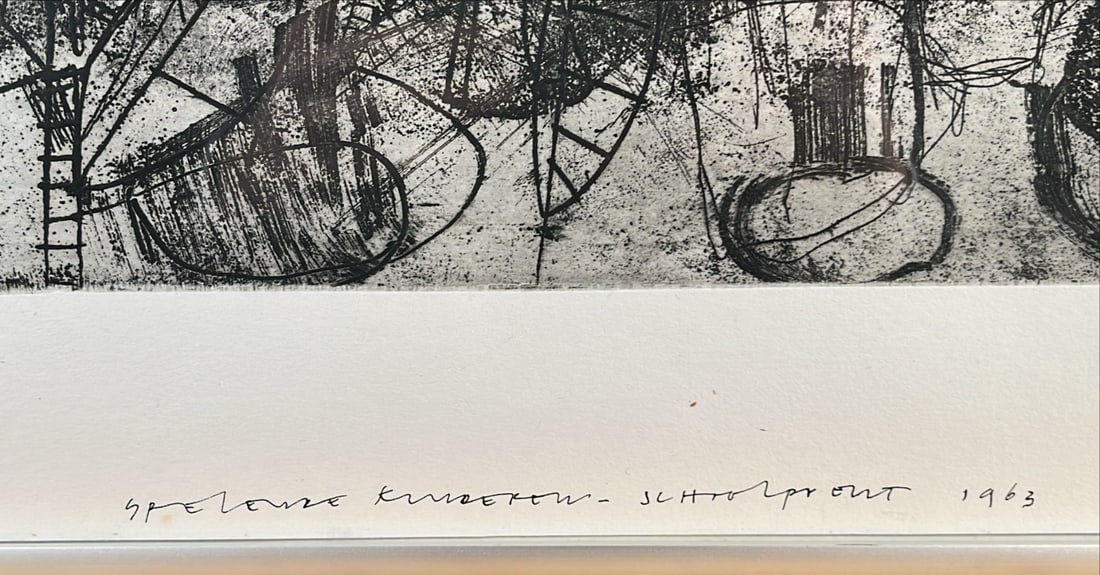 SPELENDE KINDEREN - SCHOOLPRENT 1963